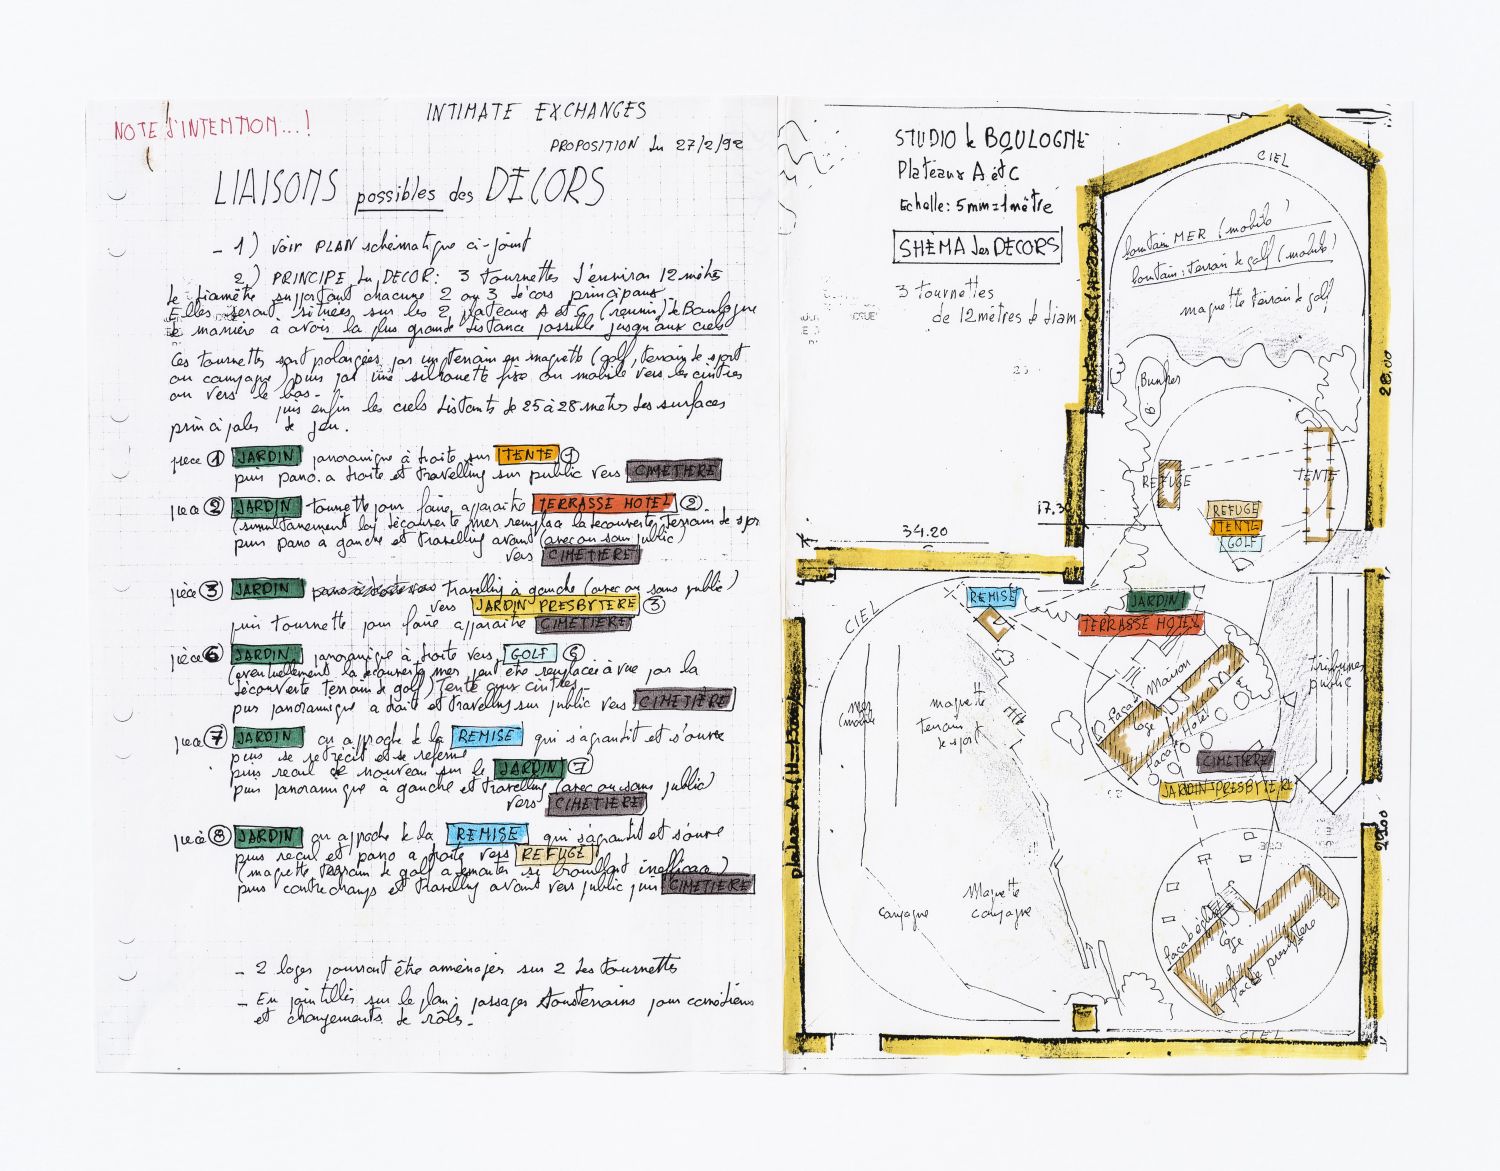 NOTE d'INTENTION...!
INTIMATE EXCHANGES
PROPOSITION du 27/2/92
LIAISONS possibles des DECORS
- 1) Voir PLAN schématique ci-joint
2) PRINCIPE du DECOR: 3 tournettes d'environ 12 mètres
de diamètre supportant chacune 2 ou 3 décors principaux
Elles seront situées sur les 2 plateaux A et C (réunis) de Boulogne
de manière à avoir la plus grande distance possible jusqu'aux ciels
Ces tournettes sont prolongées par un terrain en maquette (golf, terrain de sport
ou campagne) puis par une silhouette fixe ou mobile vers les cintres
ou vers le bas.
puis enfin les ciels distants de 25 à 28 mètres des surfaces
principales de jeu.
pièce 1 JARDIN panoramique à droite sur TENTE 1
puis pano. a droite et travelling sur public vers CIMETIERE
pièce 2 JARDIN tournette pour faire apparaitre TERRASSE HOTEL 2
(simultanement la découverte mer remplace la decouverte terrain de spor
puis pano a gauche et travelling avant (avec ou sans public)
vers CIMETIERE
pièce 3 JARDIN travelling à gauche (avec ou sans public)
vers JARDIN PRESBYTERE 3
puis tournette pour faire apparaitre CIMETIERE
pièce 6 JARDIN panoramique à droite vers GOLF 6
(eventuellement la decouverte mer peut être remplacée à vue par la
découverte terrain de golf) Tente aux cintres-
puis panoramique a droite et travelling sur public vers CIMETIERE
pièce 7 JARDIN on approche de la REMISE qui s'agrandit et s'ouvre
puis se retrécit et se referme
puis recul de nouveau sur le JARDIN 7
puis panoramique à gauche et travelling (avec ou sans public)
vers CIMETIERE
pièce 8 JARDIN on approche de la REMISE qui s'agrandit et s'ouvre
puis recul et pano a droite vers REFUGE
(maquette terrain de golf a demonter si brouillant inefficace)
puis contrechamps et travelling avant vers public puis CIMETIERE
- 2 loges pourront être aménagées sur 2 des tournettes
- En pointillés sur le plan: passages souterrains pour comédiens
et changements de rôles-
STUDIO de BOULOGNE
Plateaux A et C
Echelle: 5mm=1mètre
SHEMA des DECORS
3 tournettes
de 12 mètres de diam.
CIEL
lointain MER (mobile)
lointain: terrain de golf (mobile)
maquette terrain de golf
Bunker
B
28.00
REFUGE
TENTE
REFUGE
TENTE
GOLF
34.20
CIEL
REMISE
JARDIN
TERRASSE HOTEL
tribunes
public
Maison
Façade
loge
Façade Hotel
mer
(mobile)
maquette
terrain
de sport
CIMETIERE
JARDIN PRESBYTERE
plateau A
campagne
Maquette
campagne
Façade église
loge
Façade presbytere
CIEL